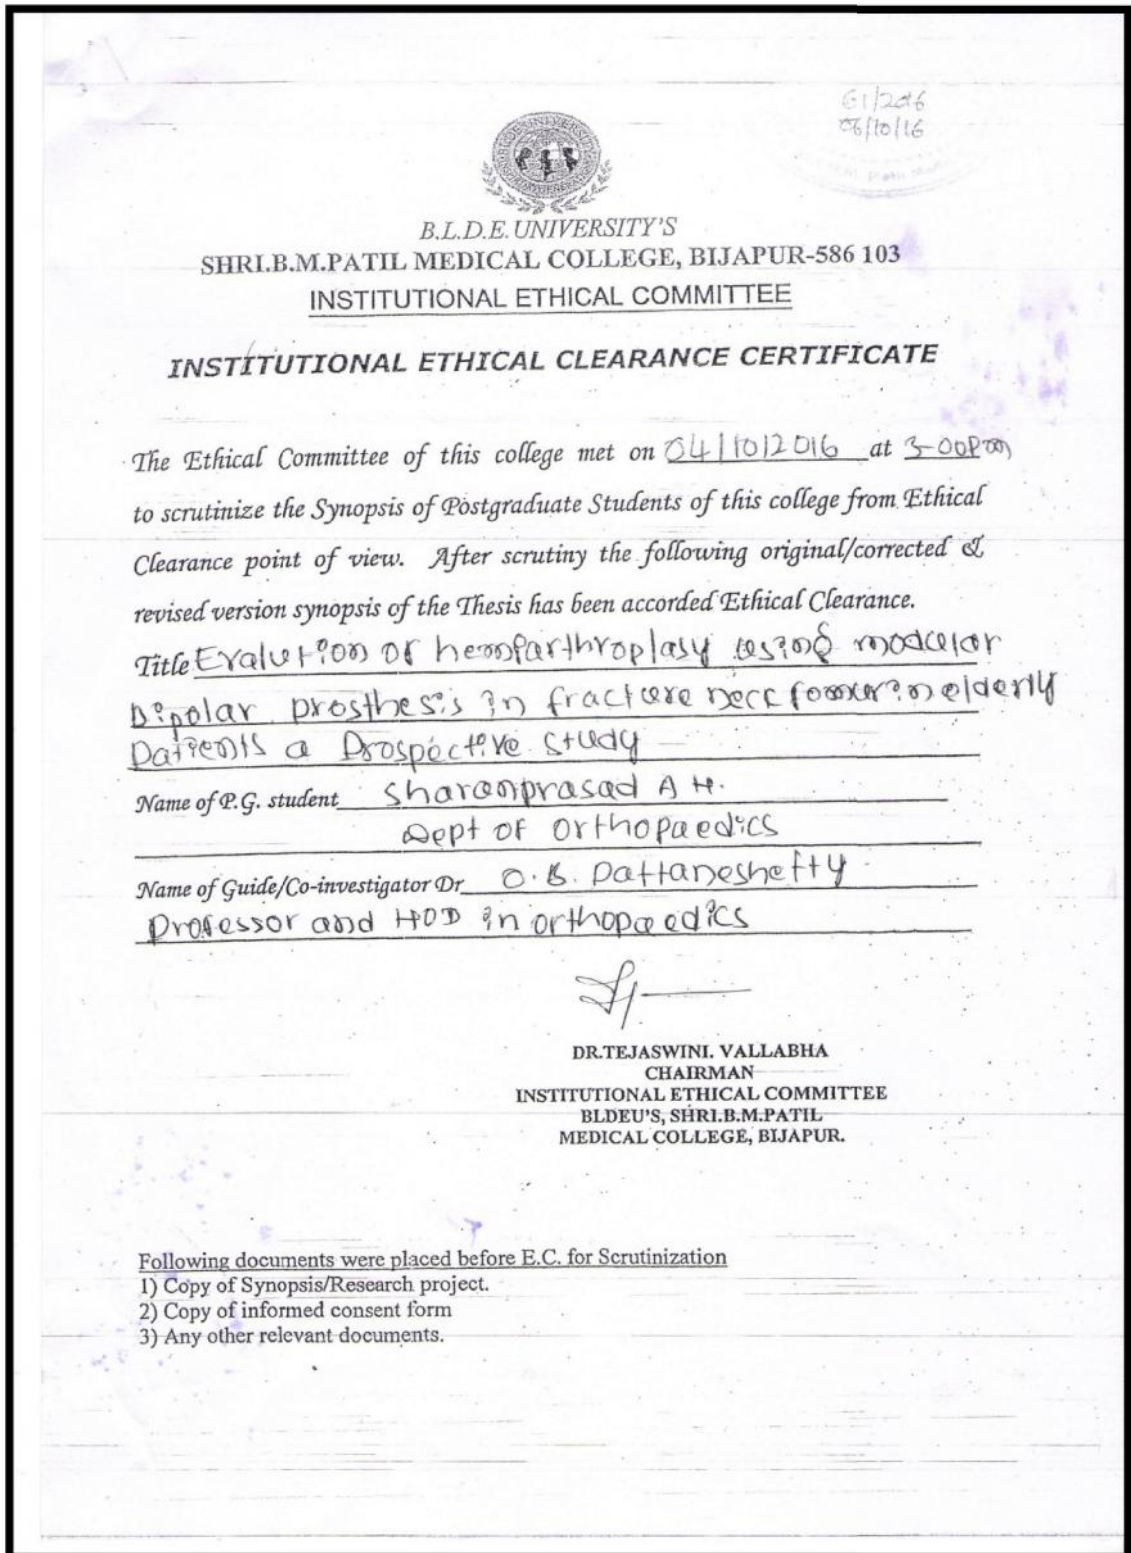 61/2016
06/10/16
B.L.D.E. UNIVERSITY'S
SHRI.B.M.PATIL MEDICAL COLLEGE, BIJAPUR-586 103
INSTITUTIONAL ETHICAL COMMITTEE
INSTITUTIONAL ETHICAL CLEARANCE CERTIFICATE
The Ethical Committee of this college met on 04/10/2016 at 3-00pm
to scrutinize the Synopsis of Postgraduate Students of this college from Ethical
Clearance point of view. After scrutiny the following original/corrected &
revised version synopsis of the Thesis has been accorded Ethical Clearance.
Title Evalution of hemiarthroplasy using modular
Bipolar prosthesis in fracture neck femur in elderly
Patients a Prospective study
Name of P.G. student Sharanprasad A H.
Dept of Orthopaedics
Name of Guide/Co-investigator Dr O.B. Pattaneshetty
Professor and HOD in orthopaedics
DR.TEJASWINI. VALLABHA
CHAIRMAN
INSTITUTIONAL ETHICAL COMMITTEE
BLDEU'S, SHRI.B.M.PATIL
MEDICAL COLLEGE, BIJAPUR.
Following documents were placed before E.C. for Scrutinization
1) Copy of Synopsis/Research project.
2) Copy of informed consent form
3) Any other relevant documents.